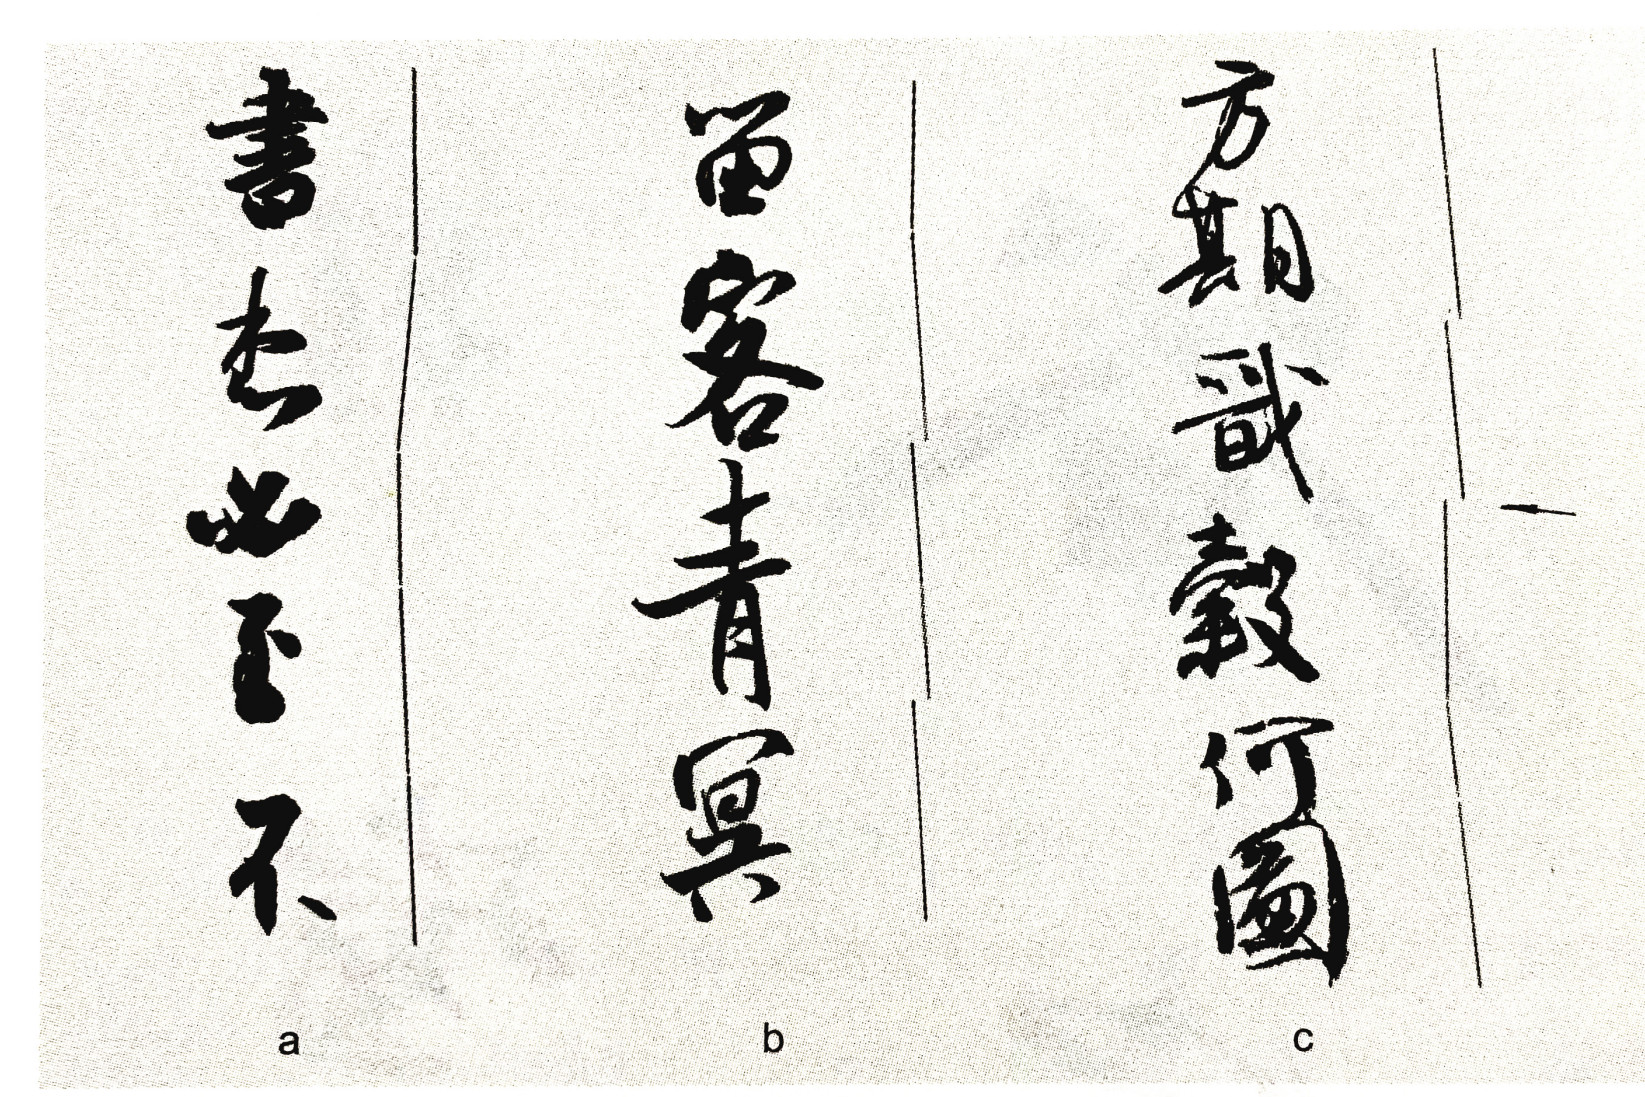 書必至不
留客青冥
方期戩穀何圖
a
b
c